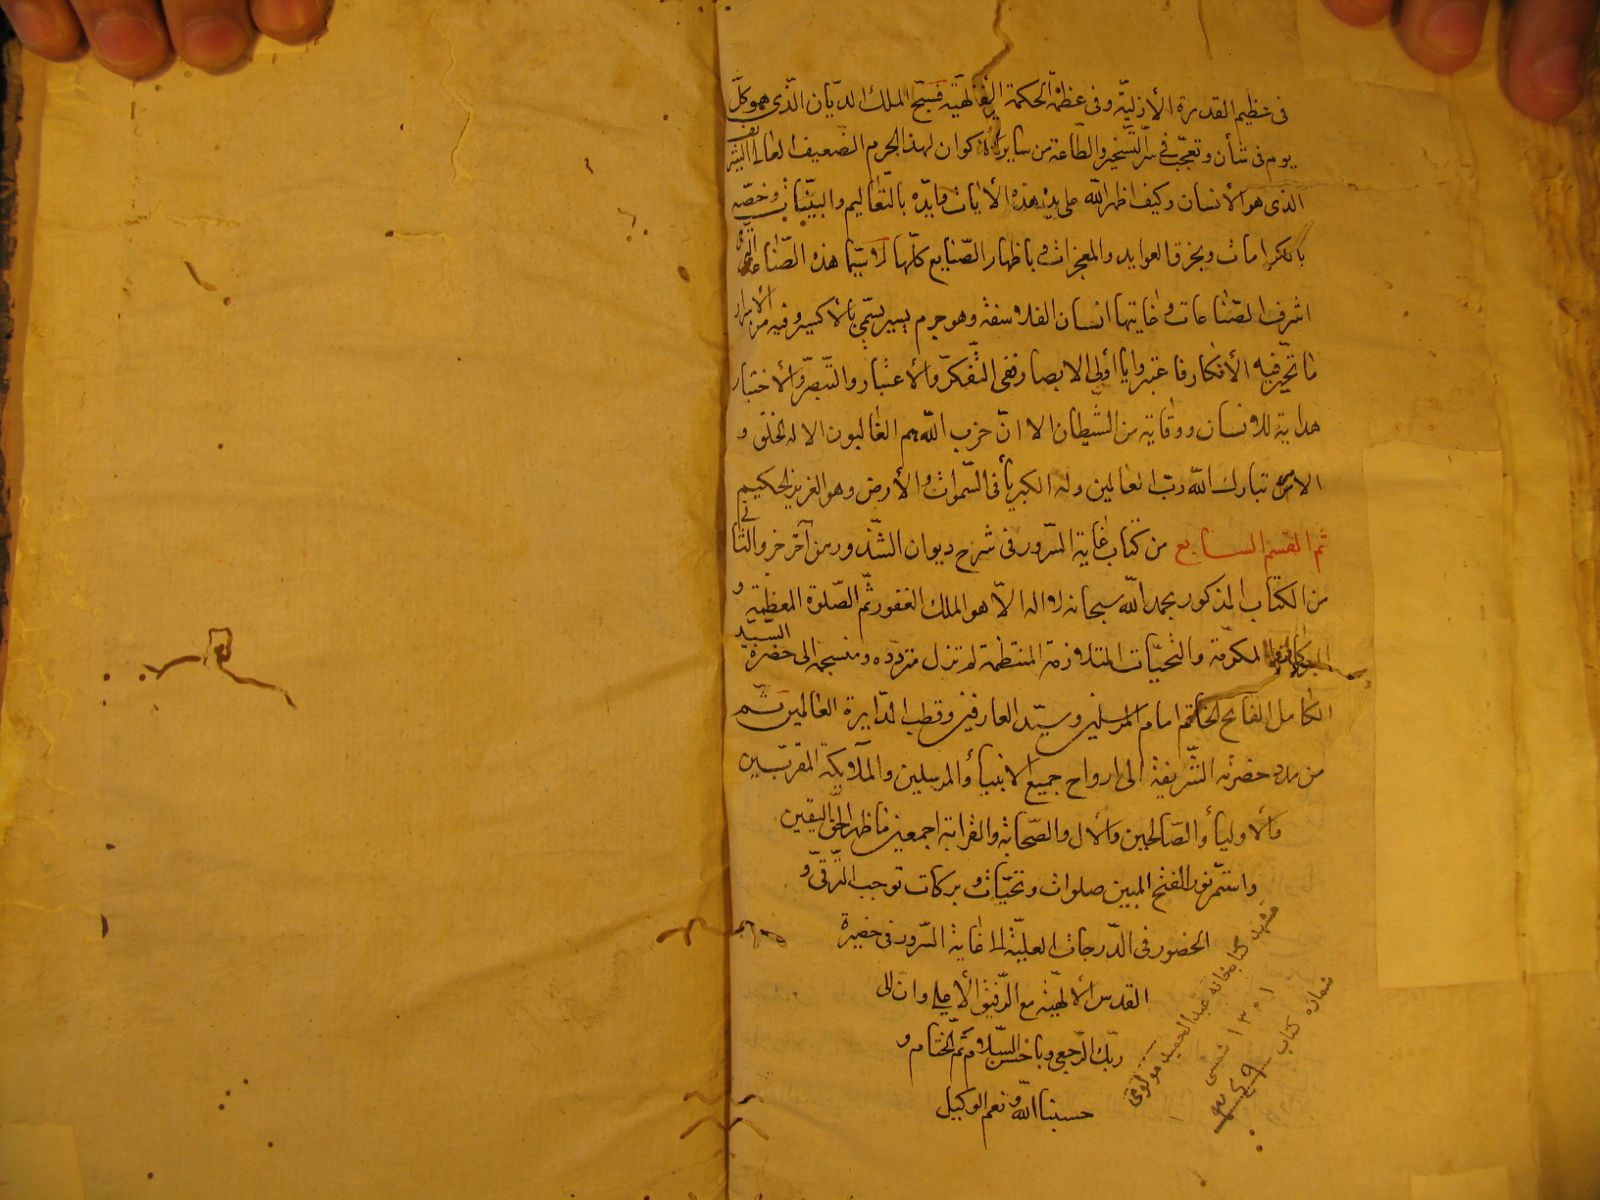 فى عظيم القدرة الأزليّة وفى عظمة الحكمة الإلهيّة فسبّح الملك الديّان الّذى هو كلّ
يوم فى شأن وتعجّب فى سرّ التسخير والطّاعة من ساير الأكوان لهذا الجرم الضعيف العالى الشريف
الذى هو الأنسان وكيف اظهر الله على يديه هذه الأيات وايّده بالتّعاليم والبيّنات وخصّه
بالكرامات وبخرق العوايد والمعجزات وباظهار الصّنايع كلّها لا سيّما هذه الصّناعة الّتى هى
اشرف الصّناعات وغايتها انسان الفلاسفة وهو جرم يسير يسمّى بالأكسير وفيه من الأسرار
ما تحيّر فيه الأفكار فاعتبروا يا أولى الابصار ففى التّفكّر والأعتبار والتّبصّر والأختبار
هداية للانسان ووقاية من الشيطان الا انّ حزب الله هم الغالبون الا له الخلق و
الامر تبارك الله ربّ العالمين وله الكبرياء فى السّموات والأرض وهو العزيز الحكيم
تم القسم السابع من كتاب غاية السّرور فى شرح ديوان الشّذور من آخر جزو الثانى
من الكتاب المذكور بحمد الله سبحانه لا اله الاّ هو الملك الغفور ثمّ الصّلوة المعظّمة و
البركات المكرّمة والتحيّات المتلازمة المنتظمة لم تزل متردّده ومنسجمة الى حضرة السيّد
الكامل الفاتح الخاتم امام المرسلين وسيّد العارفين وقطب الدّايرة العالمين ثمّ
من مدد حضرته الشّريفة الى ارواح جميع الانبياء والمرسلين والملايكة المقرّبين
والاولياء والصّالحين والأل والصّحابة والقرابة اجمعين ما ظهر الحق اليقين
واستمر نور الفتح المبين صلوات وتحيّات وبركات توجب التّرقّى و
الحضور فى الدّرجات العليّة الى غاية السّرور فى حضيرة
القدس الألهيّة مع الرّفيق الأعلى وان الى
ربّك الرّجعى وباحسن السّلام تمّ الختام و
حسبنا الله ونعم الوكيل
مشهد كتابخانه عبد الحميد مولوى
١٣٠١ شمسى
شماره كتاب